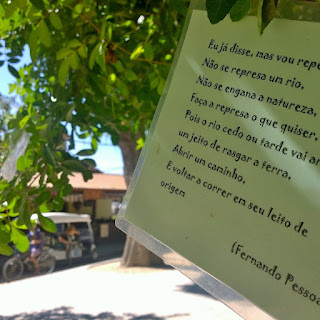 Eu já disse, mas vou repe
Não se represa um rio,
Não se engana a natureza,
Faça a represa o que quiser,
Pois o rio cedo ou tarde vai ar
um jeito de rasgar a terra,
Abrir um caminho,
E voltar a correr em seu leito de
origem
(Fernando Pessoa